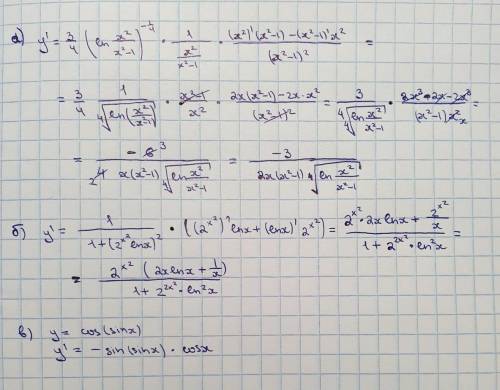 а) y' = 3/4 (ln x²/(x²-1))^(-1/4) · 1/(x²/(x²-1)) · ((x²)'(x²-1) - (x²-1)'x²)/(x²-1)² =
= 3/4 · 1/⁴√(ln(x²/(x²-1))) · (x²-1)/x² · (2x(x²-1) - 2x·x²)/(x²-1)² = 3/(4 ⁴√(ln x²/(x²-1))) · (2x³ - 2x - 2x³)/((x²-1)x²) =
= -6 3/(2 4 x(x²-1) ⁴√(ln x²/(x²-1))) = -3/(2x(x²-1) ⁴√(ln x²/(x²-1)))
б) y' = 1/(1+(2^(x²) lnx)²) · ((2^(x²))' lnx + (lnx)' 2^(x²)) = (2^(x²)·2x lnx + 2^(x²)/x)/(1+2^(2x²)·ln²x) =
= 2^(x²) (2x lnx + 1/x)/(1+2^(2x²)·ln²x)
в) y = cos(sinx)
y' = -sin(sinx)·cosx